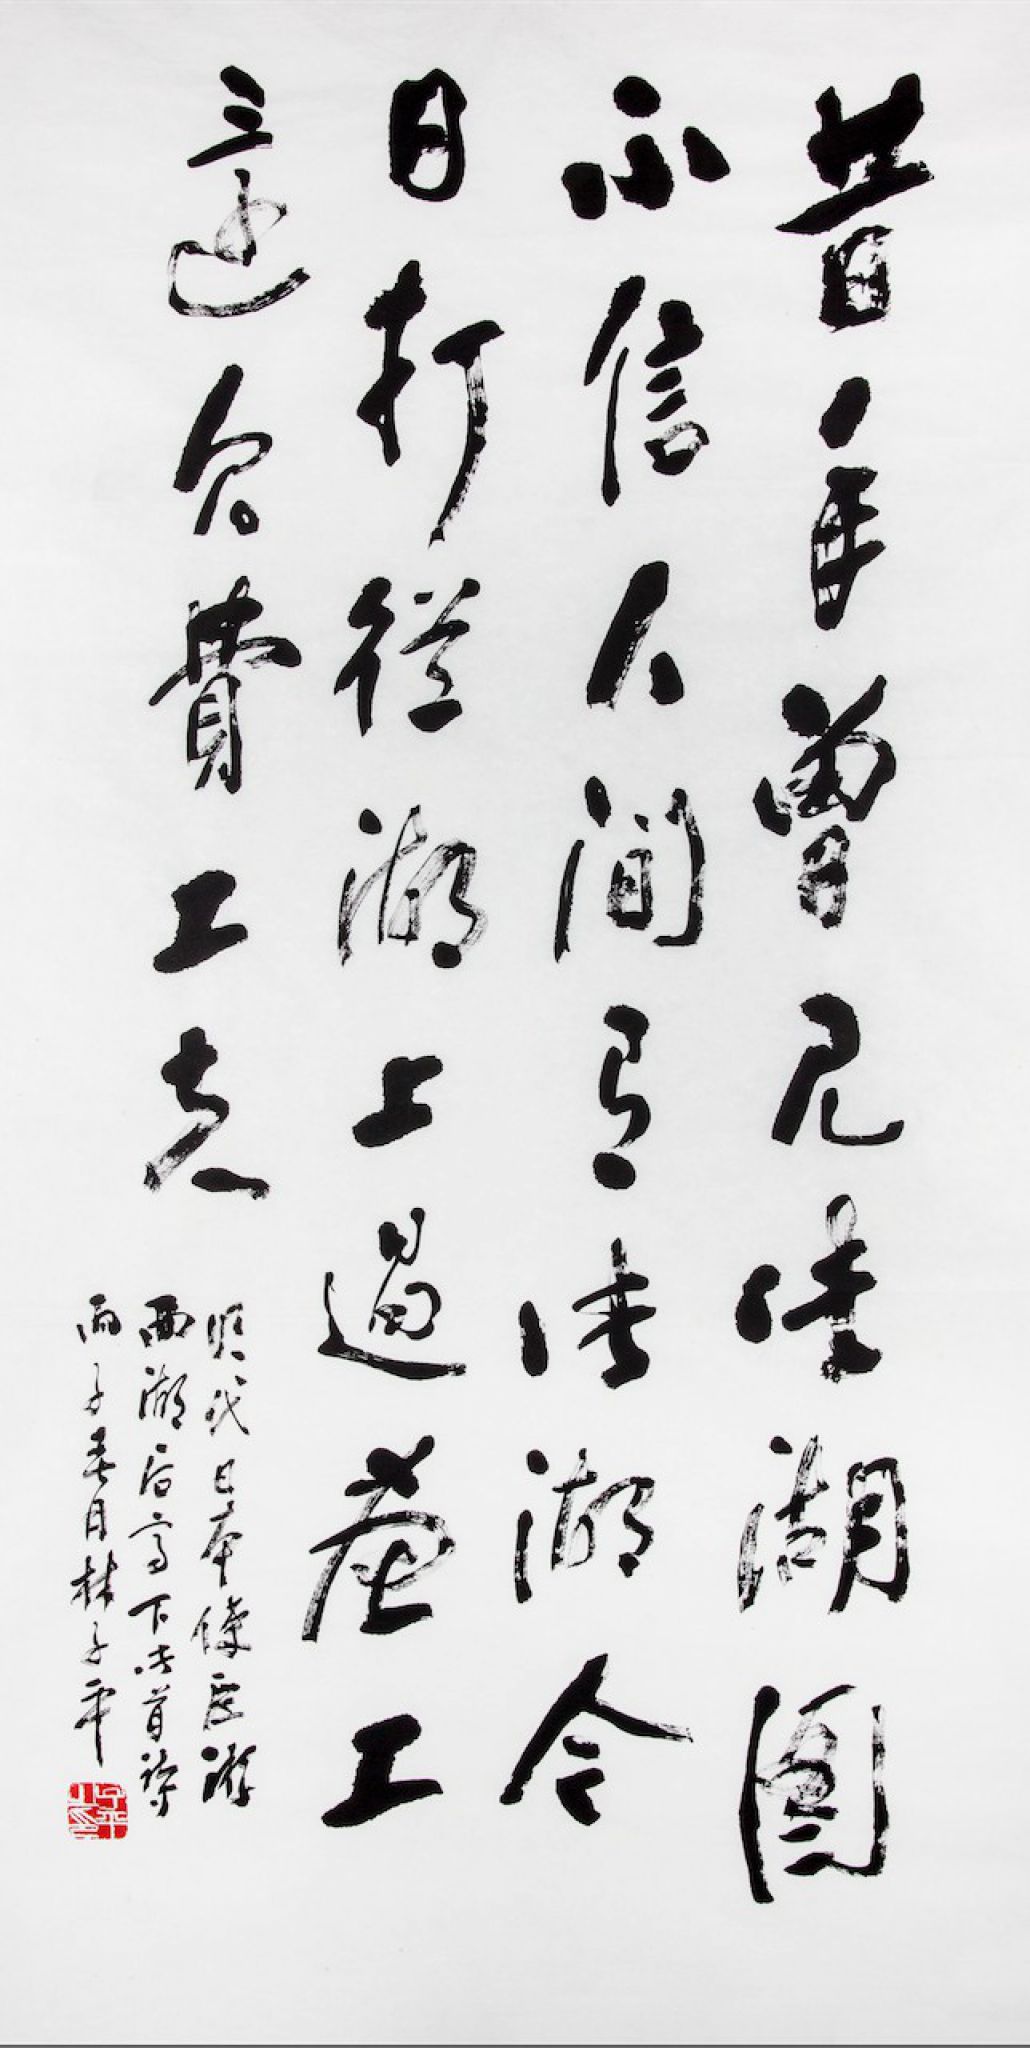 昔年曾見此湖圖
不信人間有此湖今
日打從湖上過畫工
還欠費工夫
明代日本使臣游
西湖后寫下此首詩
丙子春月林子平